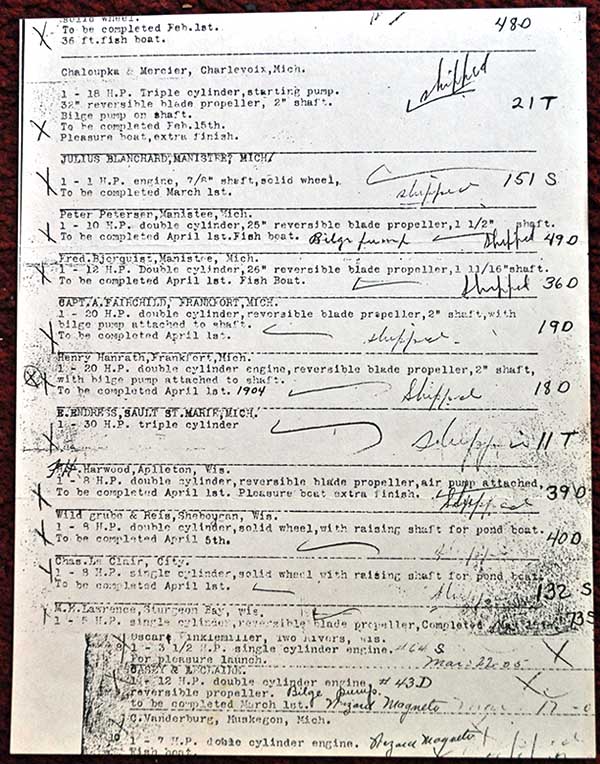 solid wheel.
X To be completed Feb.1st. 48D
36 ft.fish boat.
Chaloupka & Mercier, Charlevoix,Mich.
shipped
1 - 18 H.P. Triple cylinder,starting pump.
32" reversible blade propeller, 2" shaft. 21 T
Bilge pump on shaft.
To be completed Feb.15th.
X Pleasure boat,extra finish.
JULIUS BLANCHARD,MANISTEE, MICH.
X 1 - 1 H.P. engine, 7/8" shaft,solid wheel, 151 S
To be completed March 1st. shipped
Peter Petersen,Manistee,Mich.
X 1 - 10 H.P. double cylinder,25" reversible blade propeller,1 1/2" shaft.
To be completed April 1st.Fish boat. Bilge pump Shipped 49D
Fred.Bjorquist,Manistee, Mich.
X 1 - 12 H.P. Double cylinder,26" reversible blade propeller,1 11/16"shaft.
To be completed April 1st. Fish Boat. Shipped 36D
CAPT.A.FAIRCHILD, FRANKFORT,MICH.
1 - 20 H.P. double cylinder,reversible blade propeller,2" shaft,with
X bilge pump attached to shaft. 19D
To be completed April 1st. shipped
Henry Hanrath,Frankfort,Mich.
1 - 20 H.P. double cylinder engine,reversible blade propeller,2" shaft,
X with bilge pump attached to shaft.
To be completed April 1st. 1904 Shipped 18D
E.ENDRESS,SAULT ST.MARIE,MICH.
X 1 - 30 H.P. triple cylinder 11 T
Harwood,Aplleton, Wis.
X 1 - 8 H.P. double cylinder,reversible blade propeller,air pump attached,
To be completed April 1st. Pleasure boat extra finish. Shipped 39D
Wild grube & Reis,Sheboygan, Wis.
X 1 - 8 H.P. double cylinder,solid wheel,with raising shaft for pond boat.
To be completed April 5th. 40D
Chas.Le Clair, City.
1 - 8 H.P. single cylinder,solid wheel with raising shaft for pond boat.
To be completed April 1st. 132 S
Lawrence,Sturgeon Bay, wis.
X 1 - 5 H.P. single cylinder,reversible blade propeller,Completed 73S
Oscar Two Rivers, Wis.
1 - 3 1/2 H.P. single cylinder engine. #64 S X
For pleasure launch. Mar. 22-05
1 - 12 H.P. double cylinder engine #43D X
reversible propeller. Bilge pump.
to be completed March 1st. Wizard Magneto
C.Vanderburg, Muskegon, Mich.
1 - 7 H.P. doble cylinder engine. Wizard Magneto X
Fish boat.